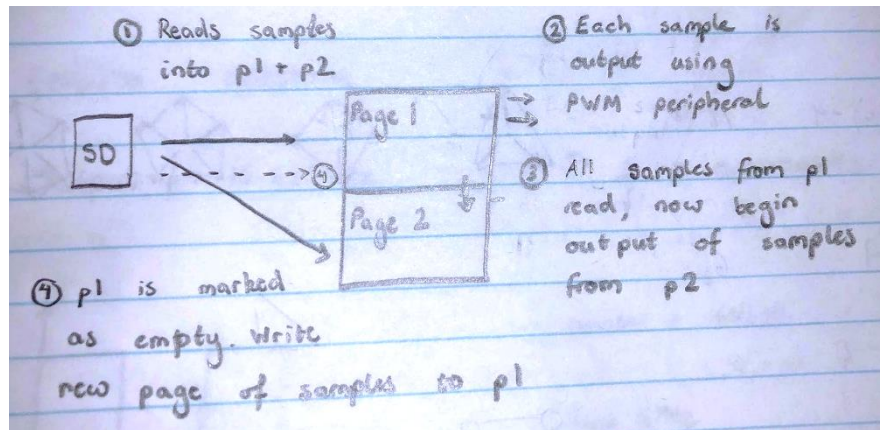 ① Reads samples
into p1 + p2
② Each sample is
output using
PWM peripheral
SD
Page 1
④
Page 2
③ All samples from p1
read, now begin
output of samples
from p2
④ p1 is marked
as empty. Write
new page of samples to p1